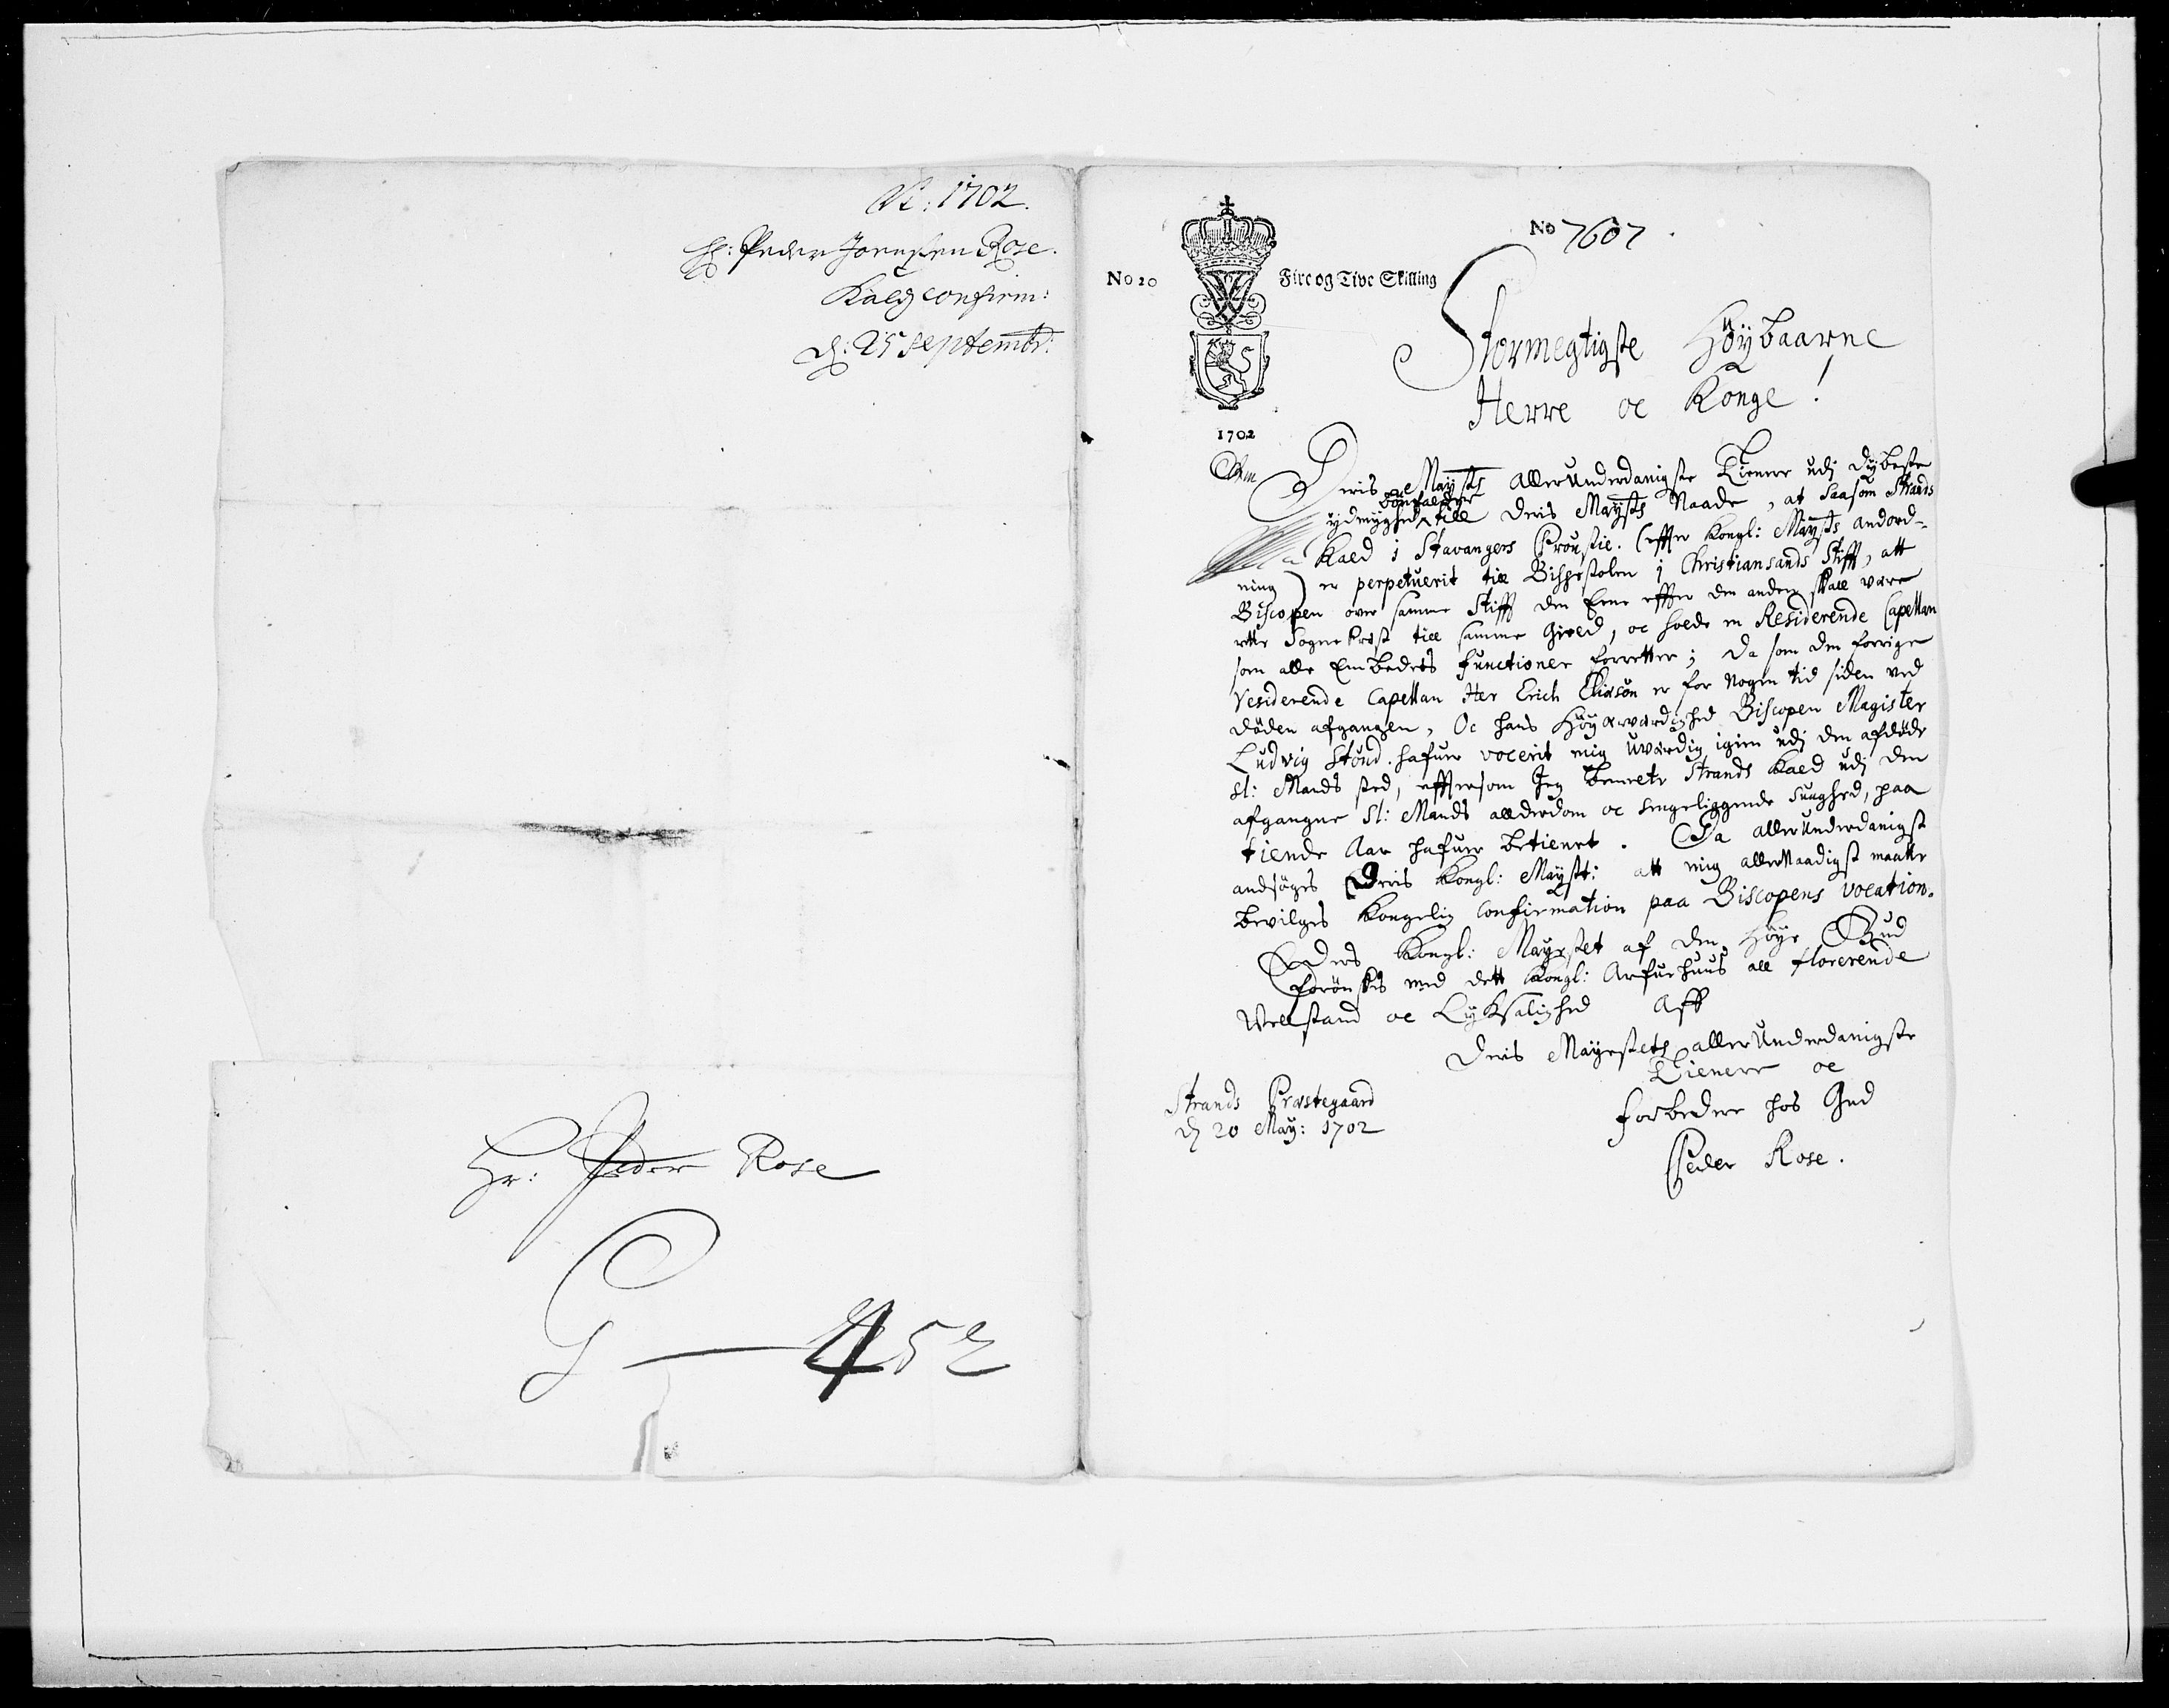 1702.
H: Peder Jörensen Rose.
Kalds confirm:
d: 25 septembr:
Hr: Peder Rose
452
No 7607.
No 20 Fire og Tive Skilling
1702
Stormegtigste Höybaarne
Herre oc Konge!
Deris Maysts allerunderdanigste Tienere udj dybeste
ydmyghed bönfalder till Deris Maysts Naade, at saasom Strands
Kald i Stavangers Proustie. (effter Kongl: Maysts andord-
ning) er perpetuerit till Bispestolen i Christiansands Stifft, att
Biscopen over samme Stifft den Eene effter den anden skall være
rette Sognepræst till samme Gield, oc holde en Residerende Capellan
som alle Embedets functioner forretter; Da som den forrige
residerende Capellan Her Erich Elixsön er for Nogen tid siden ved
döden afgangen, Oc hans Höyærværdighed Biscopen Magister
Ludvig Stoud hafver vocerit mig uværdig igien udj den afdöde
Sl: Mands sted, efftersom Jeg bemelte Strands Kald udj den
afgangne Sl: Mands allderdom oc sengeliggende Suaghed, paa
tiende Aar hafver betienet. Da allerunderdanigst
andsöges Deris Kongl: Mayst: att mig allernaadigst maatte
bevilges Kongelig Confirmation paa Biscopens vocation.
Eders Kongl: Mayestet af den Höye Gud
forönskes med dett Kongl: Arfvehuus all florerende
Wellstand oc Lyksalighed Aff
Deris Mayestets allerunderdanigste
Tienere oc
forbedere hos Gud
Peder Rose.
Strands Præstegaard
d 20 May: 1702